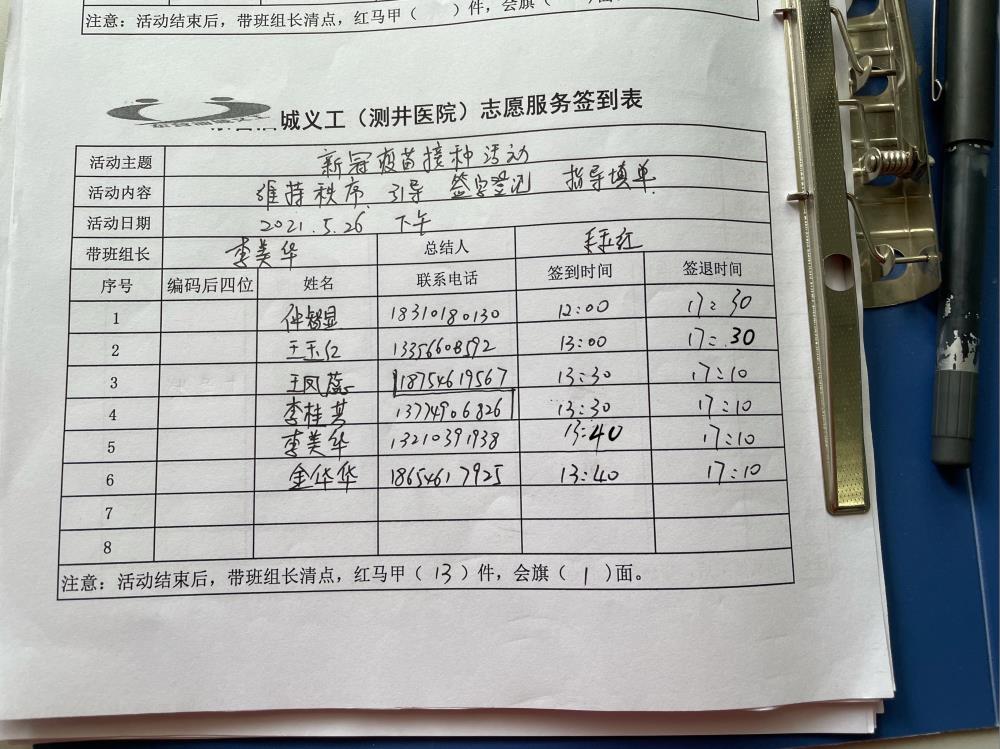 注意：活动结束后，带班组长清点，红马甲（ ）件，会旗（ ）面。
城义工（测井医院）志愿服务签到表
活动主题 新冠疫苗接种活动
活动内容 维持秩序 引导 签字登记 指导填单
活动日期 2021.5.26 下午
带班组长 李美华 总结人 王玉红
序号 编码后四位 姓名 联系电话 签到时间 签退时间
1 18310180130 12:00 17:30
2 王玉红 13356608592 13:00 17:30
3 王凤蕊 18754619567 13:30 17:10
4 李桂芬 13774906826 13:30 17:10
5 李美华 13210391938 13:40 17:10
6 金华华 18654617925 13:40 17:10
7
8
注意：活动结束后，带班组长清点，红马甲（13）件，会旗（1）面。